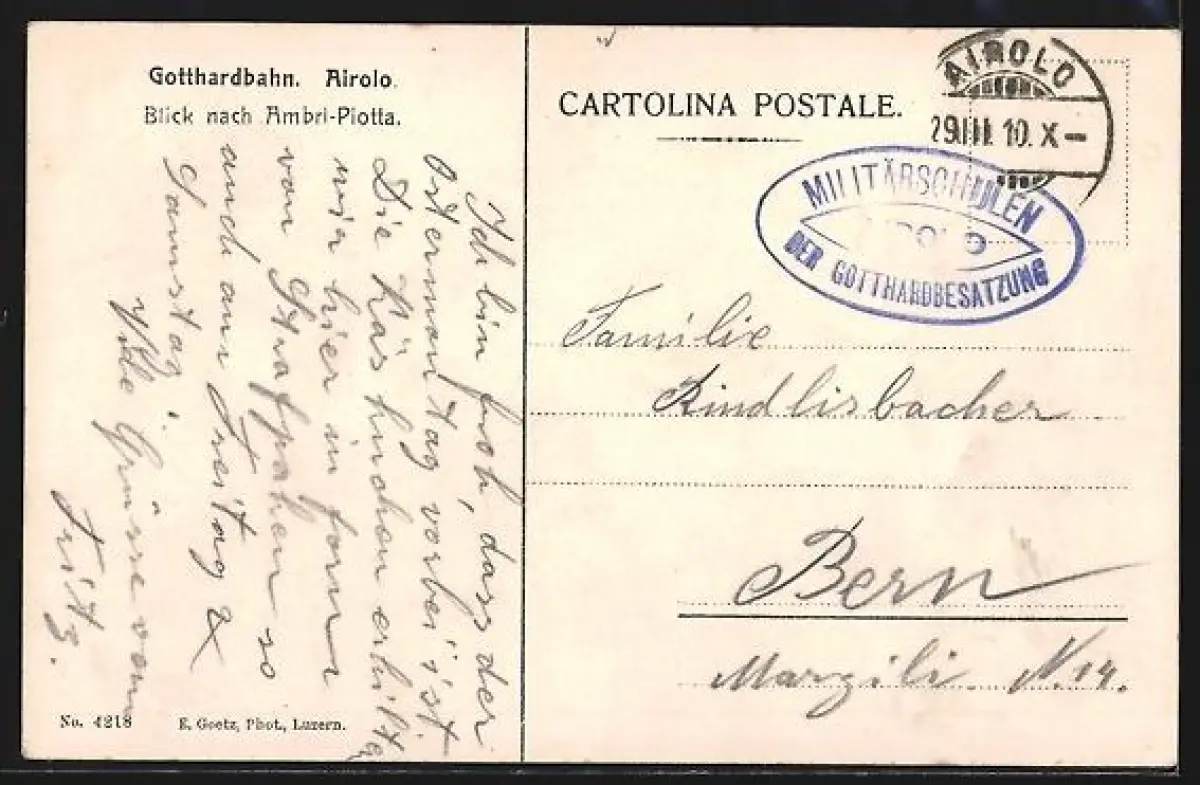 Gotthardbahn. Airolo.
Blick nach Ambri-Piotta.
Ich bin froh, dass der
Ostermontag vorbei ist.
Die Häs'chen erhilte
wir hier in form
von Strafpatzen so
auch am Freitag &
Samstag.
Viele Grüsse vom
Fritz.
No. 4218
E. Goetz, Phot., Luzern.
CARTOLINA POSTALE.
AIROLO
29.III.10.X–
MILITÄRSCHULEN
AIROLO
DER GOTTHARDBESATZUNG
Familie
Rindlisbacher
Bern
Marzili N. 14.